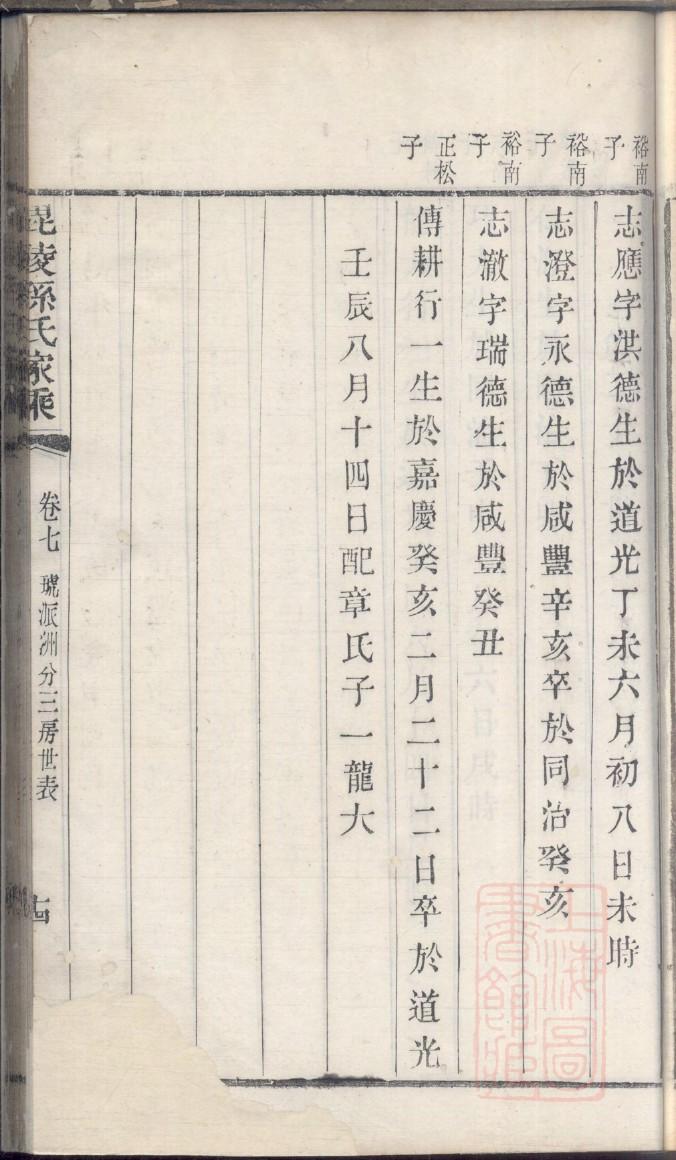 裕南子
志應字洪德生於道光丁未六月初八日未時
裕南子
志澄字永德生於咸豐辛亥卒於同治癸亥
裕南子
志澈字瑞德生於咸豐癸丑
正松子
傳耕行一生於嘉慶癸亥二月二十二日卒於道光
壬辰八月十四日配章氏子一龍大
毘陵孫氏家乘
卷七 琥派洲分三房世表
上海圖
書館藏